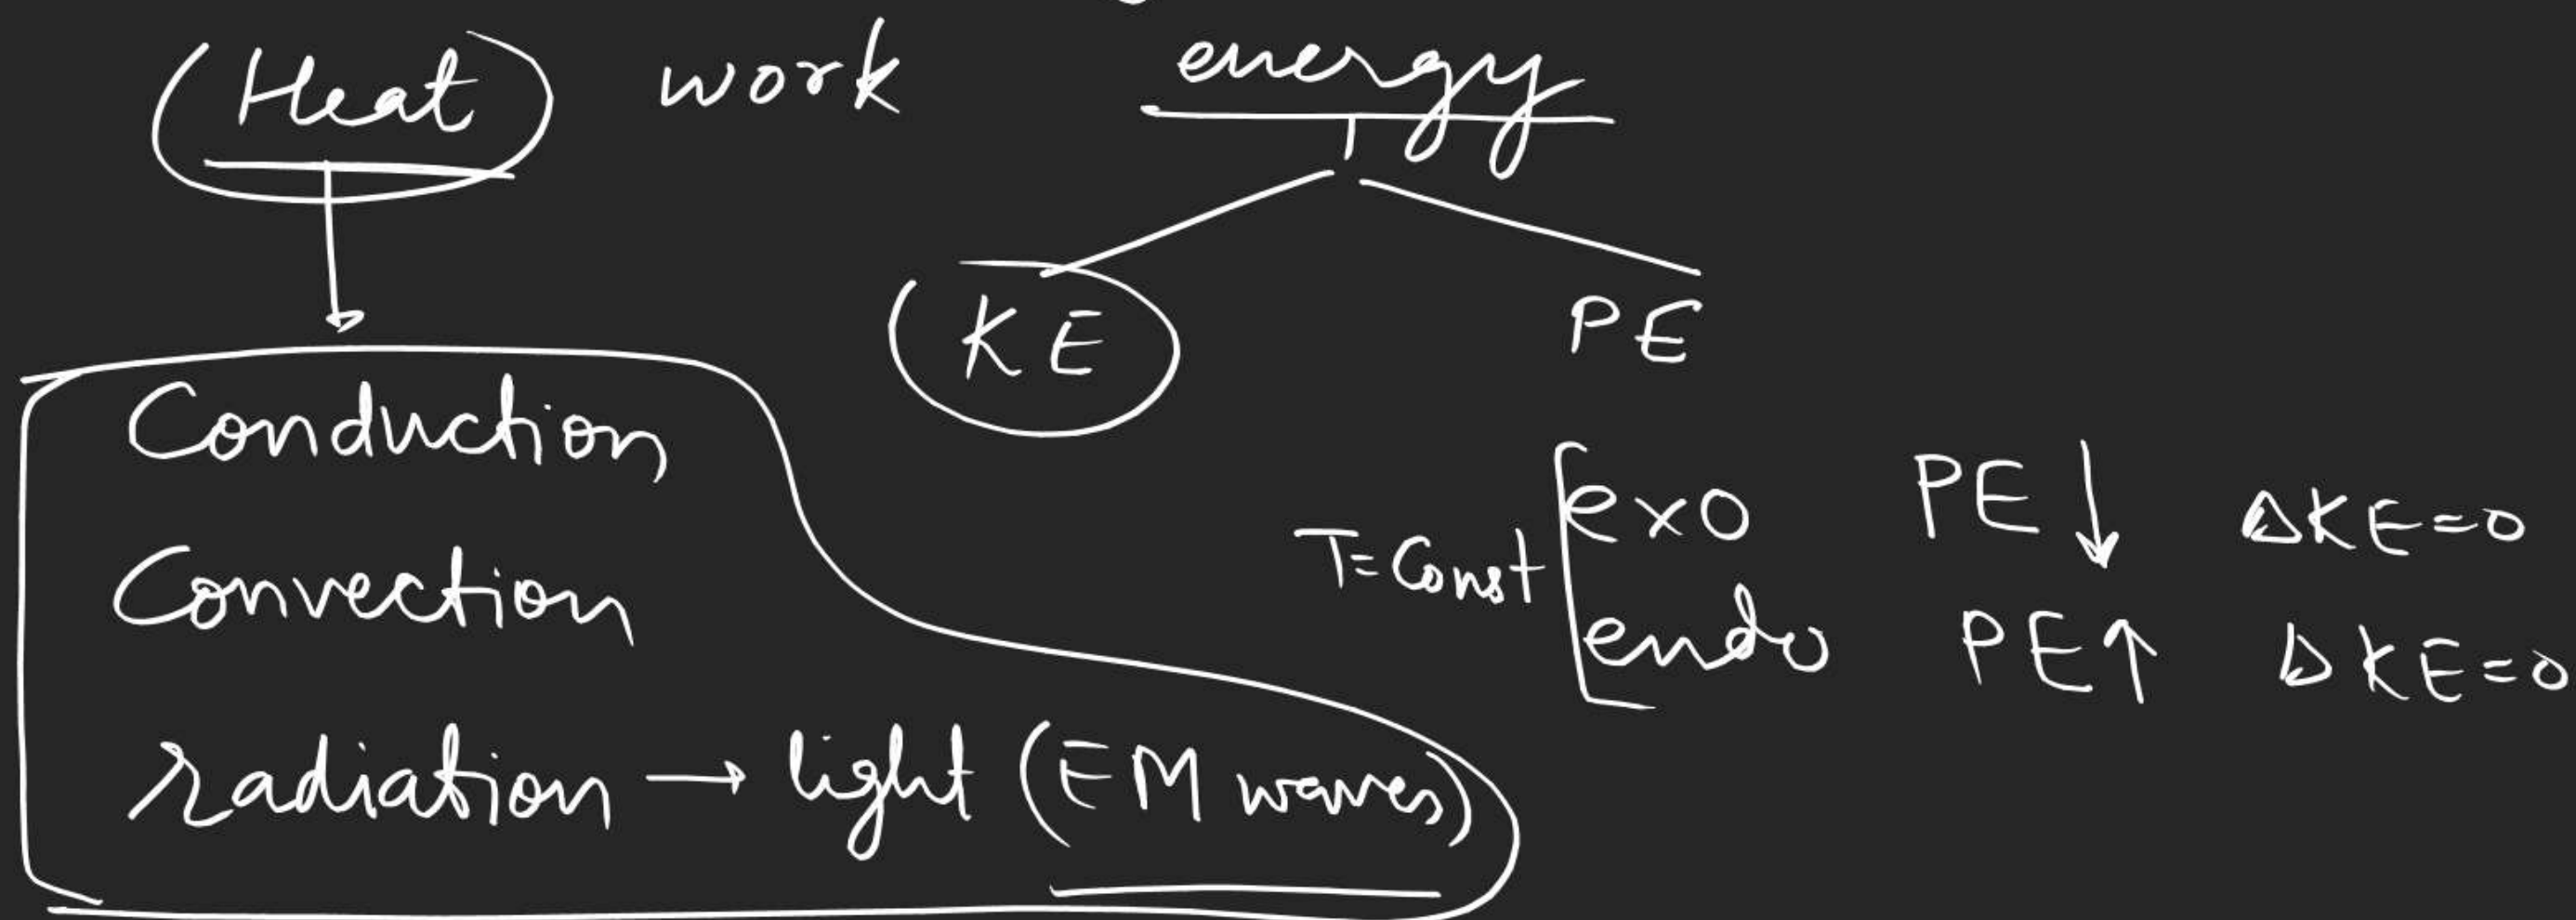 Heat work energy
KE PE
Conduction
Convection
radiation → light (EM waves)
T = Const
exo PE ↓ ΔKE = 0
endo PE ↑ ΔKE = 0